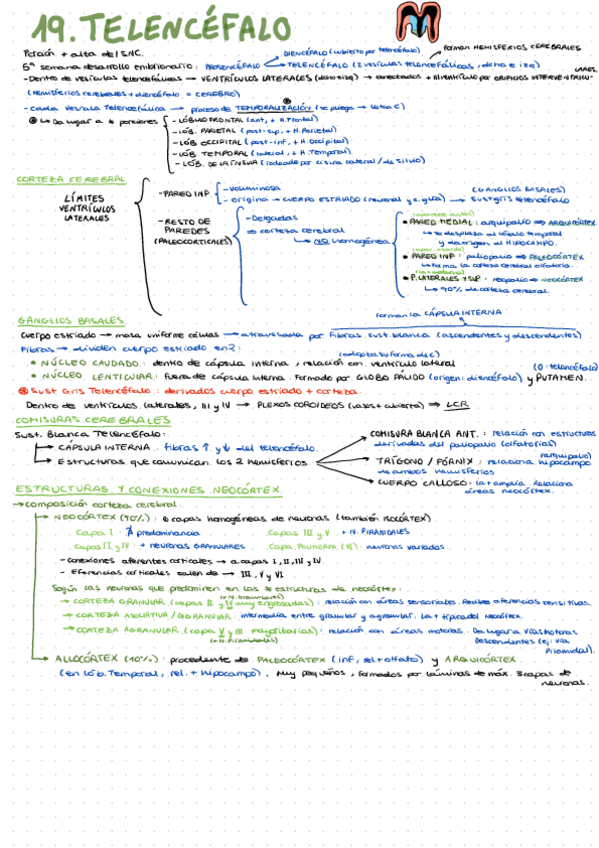 19. TELENCÉFALO
Porción + alta del SNC.
DIENCÉFALO (cubierto por telencéfalo)
forman HEMISFERIOS CEREBRALES
5ª semana desarrollo embrionario: PROSENCÉFALO
TELENCÉFALO (2 vesículas telencefálicas, dcha e izq)
- Dentro de vesículas telencefálicas → VENTRÍCULOS LATERALES (dcho e izq) → conectados + III ventrículo por ORIFICIOS INTERVENTRICU-
LARES.
(Hemisferios cerebrales + diencéfalo = CEREBRO)
- Cada vesícula telencefálica → proceso de TEMPORALIZACIÓN (se pliega → letra C)
↳ Da lugar a ≠ porciones
- LÓBULO FRONTAL (ant, + H. Frontal)
- LÓB. PARIETAL (post-sup, + H. Parietal)
- LÓB OCCIPITAL (post-inf, + H. Occipital)
- LÓB. TEMPORAL (lateral, + H. Temporal)
- LÓB. DE LA ÍNSULA (rodeada por cisura lateral / de silvio)
CORTEZA CEREBRAL
LÍMITES
VENTRÍCULOS
LATERALES
- PARED INF
- Voluminosa
- Origina → CUERPO ESTRIADO (neuronal y c. glía) → Sust gris telencéfalo
(GANGLIOS BASALES)
- RESTO DE
PAREDES
(PALEOCORTICALES)
- Delgadas
⇒ corteza cerebral
↳ NO homogénea
• PARED MEDIAL: arquipalio ⇒ ARQUICÓRTEX.
↳ se desplaza al lóbulo temporal
y da origen al HIPOCAMPO.
• PARED INF: paliopalio ⇒ PALEOCÓRTEX
↳ Forma la corteza cerebral olfatoria.
(la + moderna)
• P. LATERALES Y SUP: neopalio ⇒ NEOCÓRTEX
↳ 90% de corteza cerebral.
Forman la CÁPSULA INTERNA
GANGLIOS BASALES
Cuerpo estriado → masa uniforme células → atravesada por Fibras sust. blanca (ascendentes y descendentes)
Fibras → dividen cuerpo estriado en 2:
(adopta su forma de C)
• NÚCLEO CAUDADO: dentro de cápsula interna, relación con ventrículo lateral
(O: telencéfalo)
• NÚCLEO LENTICULAR: fuera de cápsula interna. Formado por GLOBO PÁLIDO (origen: diencéfalo) y PUTAMEN.
Sust Gris Telencéfalo: derivados cuerpo estriado + corteza.
Dentro de ventrículos laterales, III y IV → PLEXOS COROIDEOS (vasos + abierta) → LCR
COMISURAS CEREBRALES
Sust. Blanca Telencéfalo:
↳ CÁPSULA INTERNA. Fibras ↑ y ↓ del telencéfalo.
↳ Estructuras que comunican los 2 hemisferios
COMISURA BLANCA ANT.: relación con estructuras
derivadas del paliopalio (olfatorias)
(arquipalio)
TRÍGONO / FÓRNIX: relaciona hipocampo
de ambos hemisferios
CUERPO CALLOSO: la + amplia. Relaciona
áreas neocórtex.
ESTRUCTURAS Y CONEXIONES NEOCÓRTEX
→ composición corteza cerebral:
→ NEOCÓRTEX (90%): 6 capas homogéneas de neuronas (también ISOCÓRTEX)
. Capa I: predominancia
. Capas III y V: + N. PIRAMIDALES
. Capas II y IV: + neuronas GRANULARES
. Capa POLIMORFA (VI): neuronas variadas
- Conexiones aferentes corticales → a capas I, II, III y IV
- Eferencias corticales salen de → III, V y VI
Según las neuronas que predominen en las ≠ estructuras de neocórtex:
(+ N. Granulares)
→ CORTEZA GRANULAR (capas II y IV muy engrosadas): relación con áreas sensoriales. Recibe aferencias sensitivas.
→ CORTEZA ASOCIATIVA / DISGRANULAR: intermedia entre granular y agranular. La + típica del neocórtex.
→ CORTEZA AGRANULAR (capa V y III mayoritarias): relación con áreas motoras. Da lugar a VÍAS MOTORAS
(+ N. Piramidales)
Descendentes (ej: vía
Piramidal).
→ ALLOCÓRTEX (10%): procedente de PALEOCÓRTEX (inf, rel + olfato) y ARQUICÓRTEX
(en lób. Temporal, rel. + Hipocampo). Muy pequeños, formados por láminas de máx. 3 capas de
neuronas.